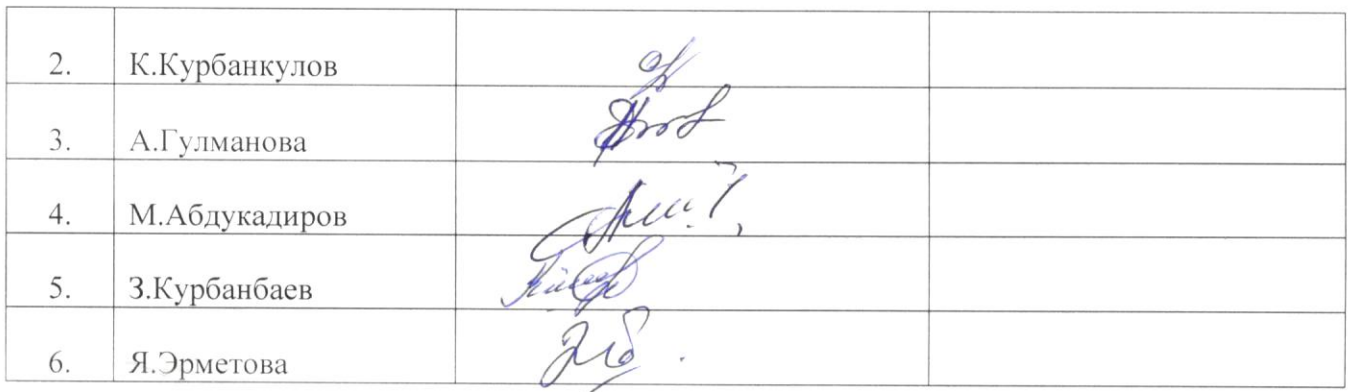 2. К.Курбанкулов
3. А.Гулманова
4. М.Абдукадиров
5. З.Курбанбаев
6. Я.Эрметова